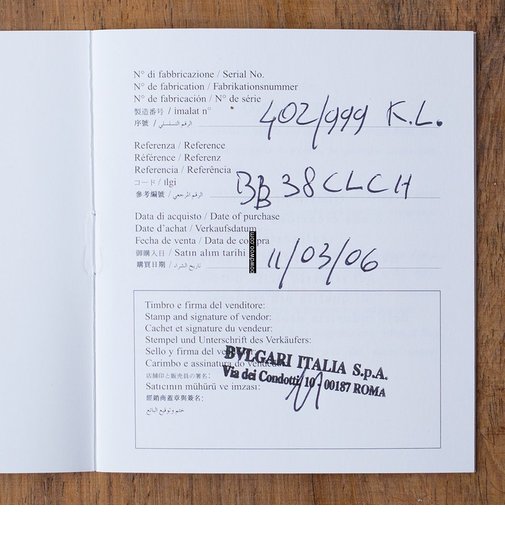 N° di fabbricazione / Serial No.
N° de fabrication / Fabrikationsnummer
N° de fabricación / N° de série
製造番号 / imalat n°
序號 / الرقم التسلسلي
402/999 K.L.
Referenza / Reference
Référence / Referenz
Referencia / Referência
コード / ilgi
參考編號 / الرقم المرجعي
BB 38 CLCH
Data di acquisto / Date of purchase
Date d'achat / Verkaufsdatum
Fecha de venta / Data de compra
御購入日 / Satın alım tarihi
購買日期 / تاريخ الشراء
11/03/06
Timbro e firma del venditore:
Stamp and signature of vendor:
Cachet et signature du vendeur:
Stempel und Unterschrift des Verkäufers:
Sello y firma del
Carimbo e assinatura do vendedor:
店舗印と販売員の署名:
Satıcının mühürü ve imzası:
經銷商蓋章與簽名:
ختم وتوقيع البائع
BVLGARI ITALIA S.p.A.
Via dei Condotti, 10 - 00187 ROMA